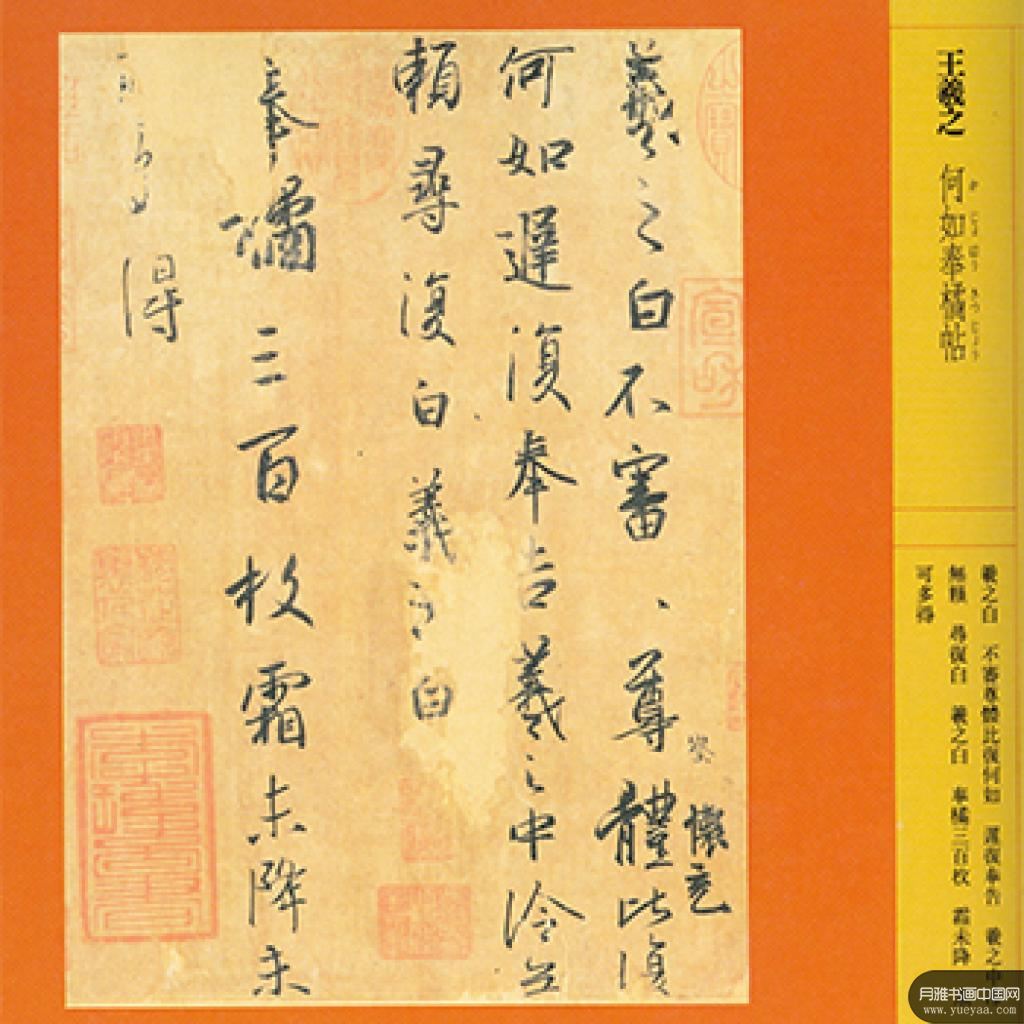 王羲之 何如奉橘帖
か じょ ほう きつ じょう
羲之白 不審尊體比復何如 遲復奉告 羲之中
無賴 尋復白 羲之白 奉橘三百枚 霜未降
可多得
羲之白不審尊體比復
懷充
何如遲復奉告羲之中冷無
賴尋復白羲之白
奉橘三百枚霜未降未
可多得
月雅书画中国网
www.yueyaa.com